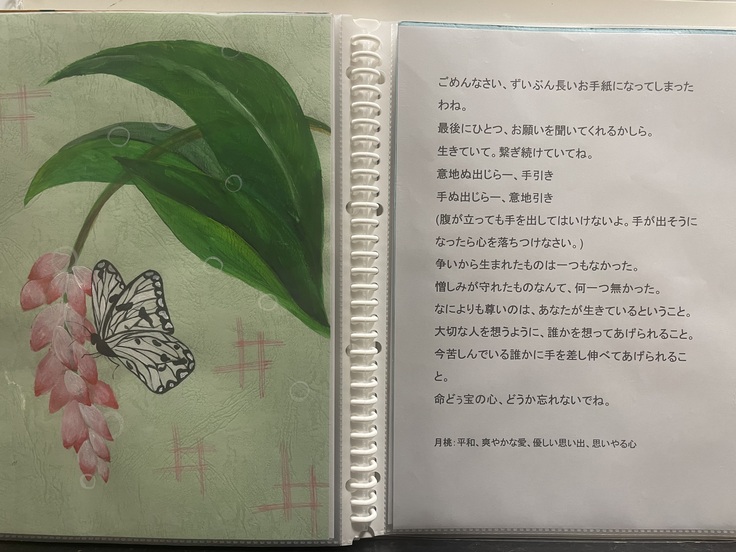 ごめんなさい、ずいぶん長いお手紙になってしまった
わね。
最後にひとつ、お願いを聞いてくれるかしら。
生きていて。繋ぎ続けていてね。
意地ぬ出じらー、手引き
手ぬ出じらー、意地引き
(腹が立っても手を出してはいけないよ。手が出そうに
なったら心を落ちつけなさい。)
争いから生まれたものは一つもなかった。
憎しみが守れたものなんて、何一つ無かった。
なによりも尊いのは、あなたが生きているということ。
大切な人を想うように、誰かを想ってあげられること。
今苦しんでいる誰かに手を差し伸べてあげられるこ
と。
命どぅ宝の心、どうか忘れないでね。
月桃:平和、爽やかな愛、優しい思い出、思いやる心